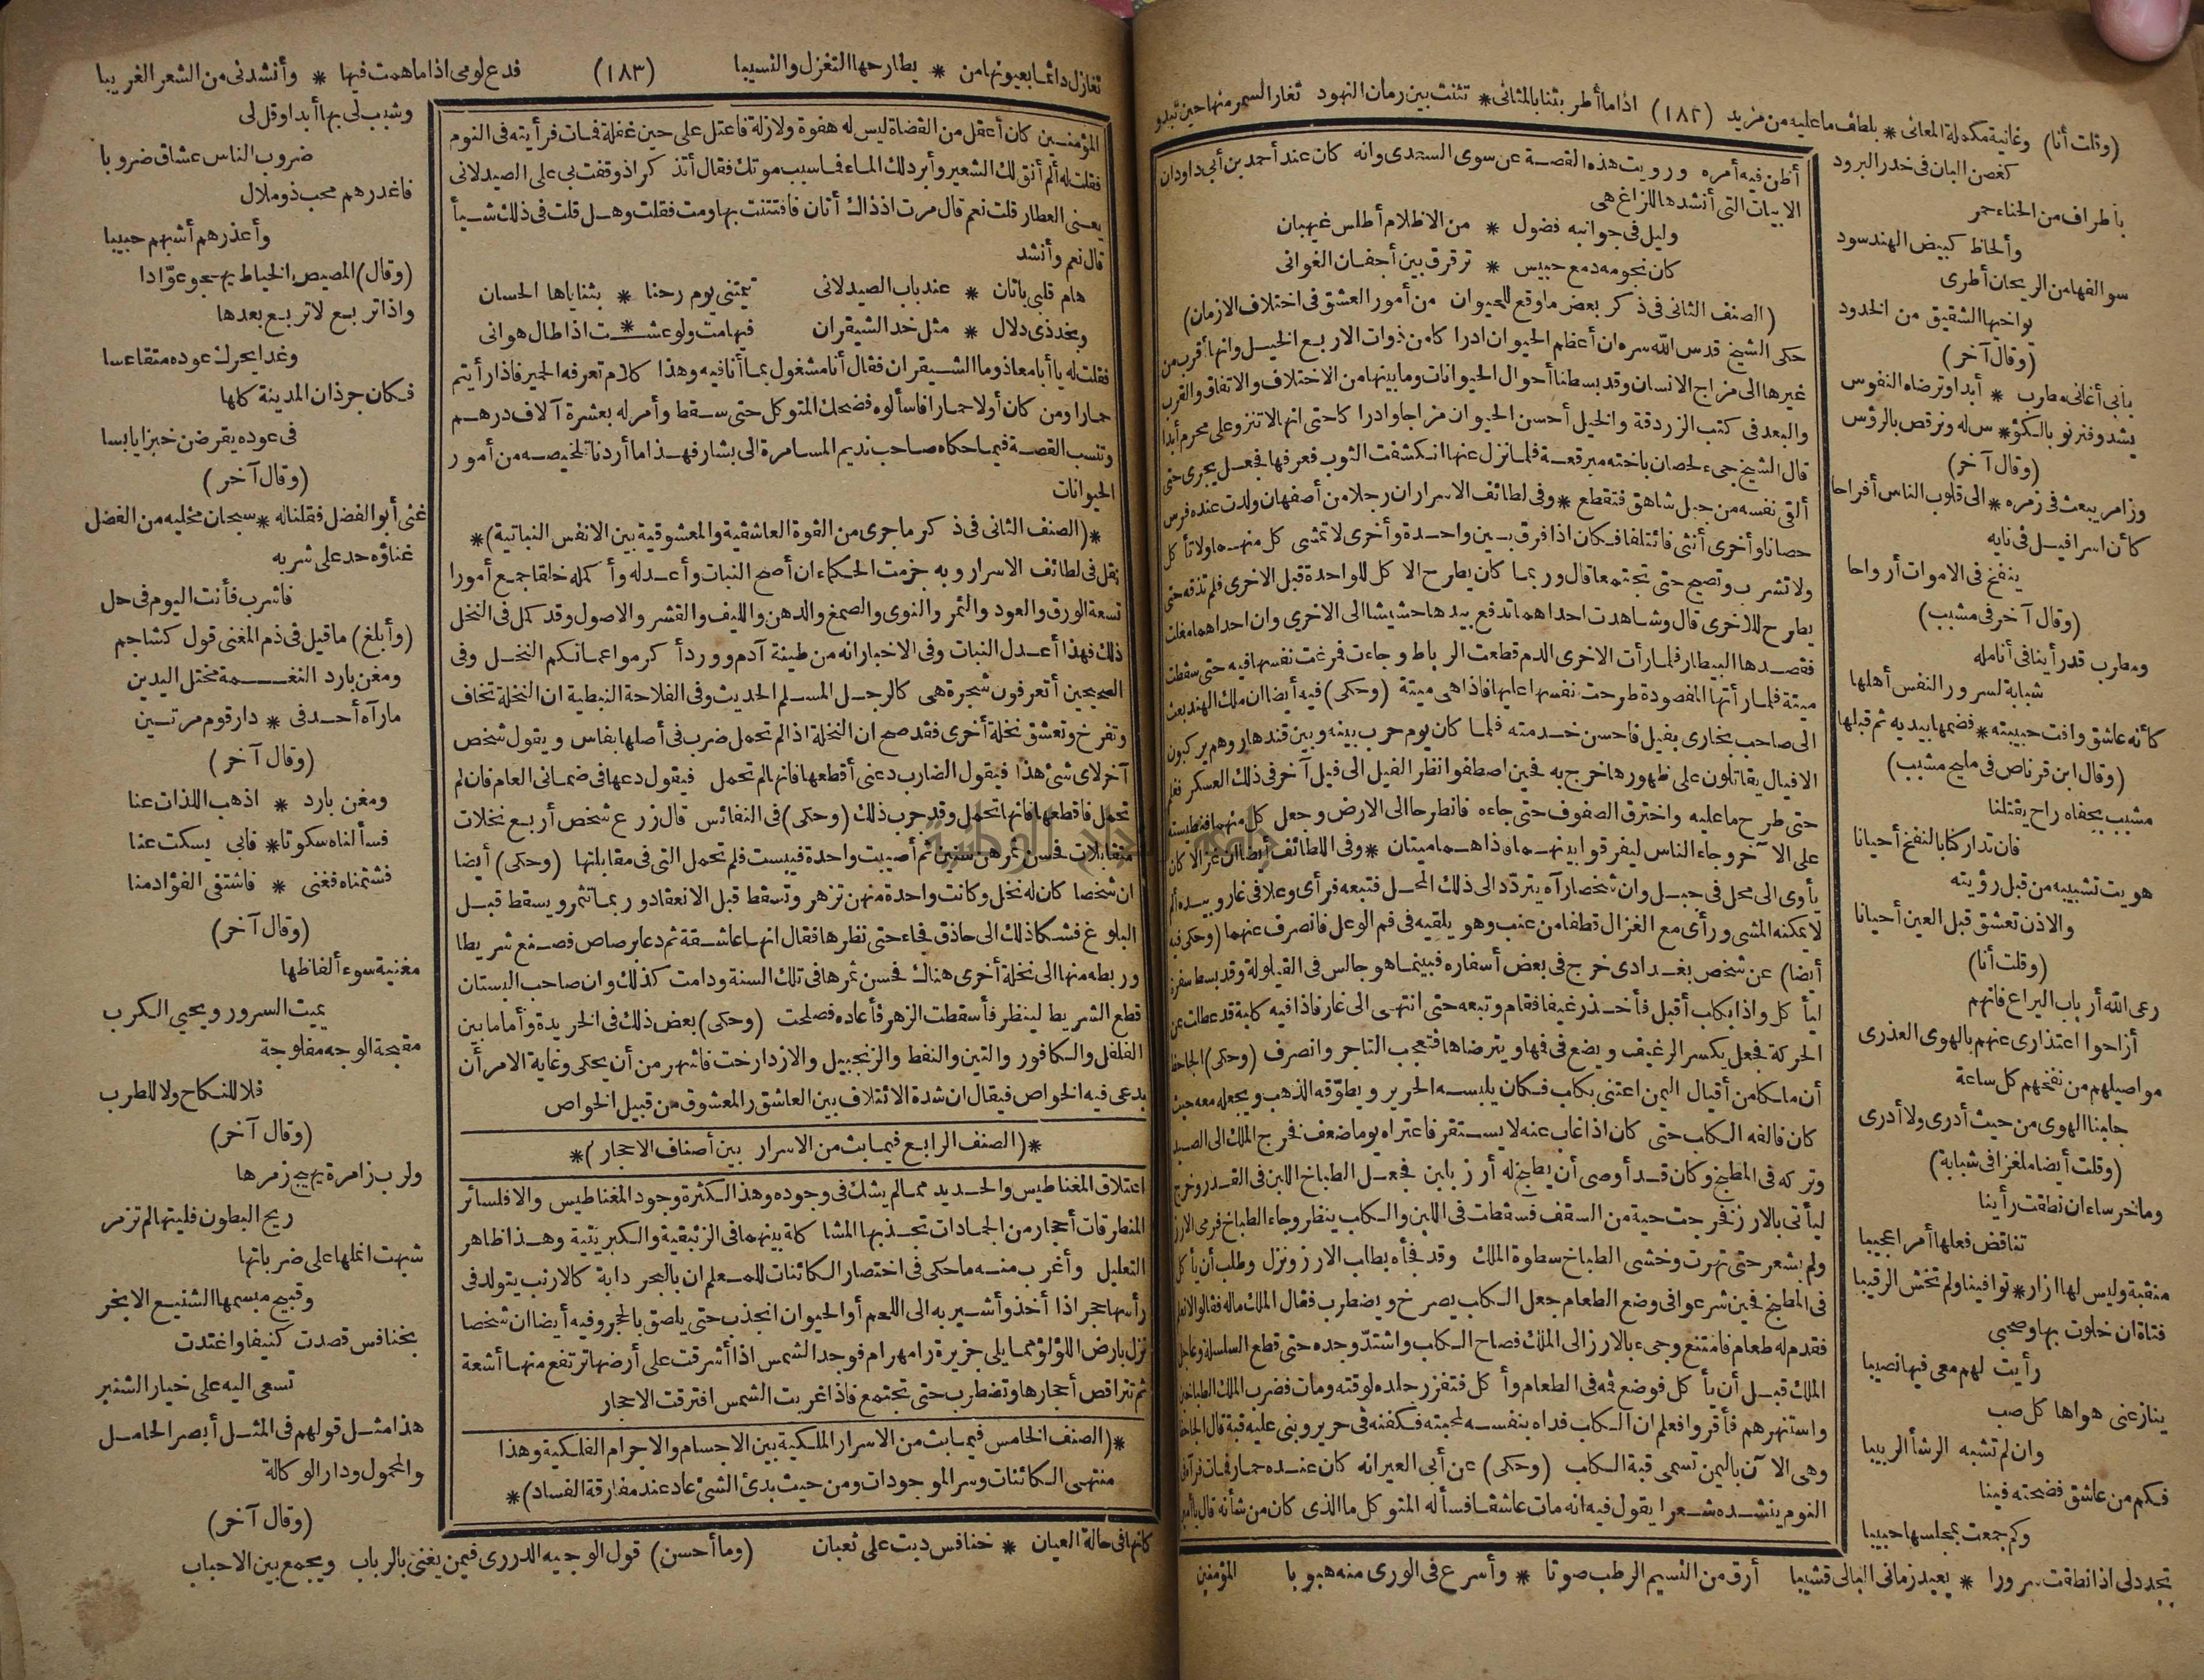 (وقلت أنا) وغانية مكملة المعانى * بلطف ما عليه من مزيد (١٨٢) اذا ما أطربتنا بالمثانى * تثنت بين رمان النهود ثغار السمر منها حين تبدو
كغصن البان فى خدر البرود
بأطراف من الحناء حمر
وألحاظ كبيض الهند سود
سوالفها من الريحان أطرى
يواخيها الشقيق من الخدود
(وقال آخر)
بأبى أغانى مطرب * أبدا وترضاه النفوس
يشدو فنرنو بالكؤ * س له ونرقص بالرؤس
(وقال آخر)
وزامر يبعث فى زمره * الى قلوب الناس أفراحا
كأن اسرافيل فى نايه
ينفخ فى الاموات أرواحا
(وقال آخر فى مشبب)
ومطرب قد رأينا فى أنامله
شبابة لسرور النفس أهلها
كأنه عاشق وافت حبيبته * فضمها بيديه ثم قبلها
(وقال ابن قرناص فى مليح مشبب)
مشبب بجفاه راح يقتلنا
فان تداركنا بالنفخ أحيانا
هويت تشبيبه من قبل رؤيته
والاذن تعشق قبل العين أحيانا
(وقلت أنا)
رعى الله أرباب اليراع فانهم
أزاحوا اعتذارى عنهم بالهوى العذرى
مواصيلهم من نفخهم كل ساعة
جلبنا الهوى من حيث أدرى ولا أدرى
(وقلت أيضا ملغزا فى شبابة)
وما خرساء ان نطقت رأينا
تناقض فعلها أمرا عجيبا
منقبة وليس لها ازار * توافينا ولم تخش الرقيبا
فتاة ان خلوت بها وصحبى
رأيت لهم معى فيها نصيبا
ينازعنى هواها كل صب
وان لم تشبه الرشأ الربيبا
فكم من عاشق فضحته فينا
وكم جمعت بمجلسها حبيبا
تجدد لى اذا نطقت سرورا * يعيد زمانى البالى قشيبا أرق من النسيم الرطب صوتا * وأسرع فى الورى منه هبوبا المؤمنين
أظن فيه أمره ورويت هذه القصة عن سوى السعدى وانه كان عند أحمد بن أبى داود ان
الابيات التى أنشدها للزاغ هى
وليل فى جوانبه فضول * من الاظلام أطلس غيهبان
كان نجومه دمع حبيس * ترقرق بين أجفان الغوانى
(الصنف الثانى فى ذكر بعض ما وقع للحيوان من أمور العشق فى اختلاف الازمان)
حكى الشيخ قدس الله سره ان أعظم الحيوان ادراكا من ذوات الاربع الخيل وانها أقرب من
غيرها الى مزاج الانسان وقد بسطنا أحوال الحيوانات وما بينها من الاختلاف والاتفاق والقرب
والبعد فى كتب الزردقة والخيل أحسن الحيوان مزاجا وادراكا حتى انها لا تنزو على محرم أبدا
قال الشيخ جىء لحصان باخته مبرقعة فلما نزل عنها انكشفت الثوب فعرفها فجعل يجرى حتى
ألقى نفسه من جبل شاهق فتقطع * وفى لطائف الاسرار ان رجلا من أصفهان ولدت عنده فرس
حصانا وأخرى أنثى فائتلفا فكان اذا فرق بين واحدة وأخرى لا تمشى كل منهما ولا تأكل
ولا تشرب وتصيح حتى تجتمعا قال وربما كان يطرح الاكل للواحدة قبل الاخرى فلم تذقه حتى
يطرح للاخرى قال وشاهدت احداهما تدفع بيدها حشيشا الى الاخرى وان احداهما مغلت
فقصدها البيطار فلما رأت الاخرى الدم قطعت الرباط وجاءت فمرغت نفسها فيه حتى سقطت
ميتة فلما رأتها المفصودة طرحت نفسها عليها فاذا هى ميتة (وحكى) فيه أيضا ان ملك الهند بعث
الى صاحب بخارى بفيل فاحسن خدمته فلما كان يوم حرب بينه وبين قندهار وهم يركبون
الافيال يقاتلون على ظهورها خرج به فحين اصطفوا نظر الفيل الى فيل آخر فى ذلك العسكر ففعل
حتى طرح ما عليه واخترق الصفوف حتى جاءه فانطرحا الى الارض وجعل كل منهما فنطيسته
على الآخر وجاء الناس ليفرقوا بينهما فاذا هما ميتان * وفى اللطائف أيضا ان غزالا كان
يأوى الى محل فى جبل وان شخصا رآه يتردد الى ذلك المحل فتبعه فرأى وعلا فى غار وبيده ألم
لا يمكنه المشى ورأى مع الغزال قطفا من عنب وهو يلقيه فى فم الوعل فانصرف عنهما (وحكى فيه
أيضا) عن شخص بغدادى خرج فى بعض أسفاره فبينما هو جالس فى القيلولة وقد بسط سفرة
ليأكل واذا بكلب أقبل فأخذ رغيفا فقام وتبعه حتى انتهى الى غار فاذا فيه كلبة قد عطلت عن
الحركة فجعل يكسر الرغيف ويضع فى فيها ويترضاها فتعجب التاجر وانصرف (وحكى) الجاحظ
أن ملكا من أقيال اليمن اعتنى بكلب فكان يلبسه الحرير ويطوّقه الذهب ويجعله معه حيث
كان فالفه الكلب حتى كان اذا غاب عنه لا يستقر فاعتراه يوما ضعف فخرج الملك الى الصيد
وتركه فى المطبخ وكان قد أوصى أن يطبخ له أرز بلبن فجعل الطباخ اللبن فى القدر وخرج
ليأتى بالارز فخرجت حية من السقف فسقطت فى اللبن والكلب ينظر وجاء الطباخ فرمى الارز
ولم يشعر حتى تهرت وخشى الطباخ سطوة الملك وقد فجأه بطلب الارز ونزل وطلب أن يأكل
فى المطبخ فحين شرعوا فى وضع الطعام جعل الكلب يصرخ ويضطرب فقال الملك ماله فقالوا لا نعلم
فقدم له طعام فامتنع وجىء بالارز الى الملك فصاح الكلب واشتدّ وجده حتى قطع السلسلة وعاجل
الملك قبل أن يأكل فوضع فمه فى الطعام وأكل فتفزر جلده لوقته ومات فضرب الملك الطباخين
واستنهرهم فأقروا فعلم ان الكلب فداه بنفسه لمحبته فكفنه فى حرير وبنى عليه قبة قال الجاحظ
وهى الآن باليمن تسمى قبة الكلب (وحكى) عن أبى العيرانه كان عنده حمار فمات فرآه فى
النوم ينشده شعرا يقول فيه انه مات عاشقا فسأله المتوكل ما الذى كان من شأنه قال يا أمير
تغازل دائما بعيونها من * يطارحها التغزل والنسيبا (١٨٣) فدع لومى اذا ما همت فيها * وأنشدنى من الشعر الغريبا
المؤمنين كان أعقل من القضاة ليس له هفوة ولا زلة فاعتل على حين غفلة فمات فرأيته فى النوم
فقلت له ألم أنق لك الشعير وأبرد لك الماء فما سبب موتك فقال أتذكر اذ وقفت بى على الصيدلانى
يعنى العطار قلت نعم قال مرت اذ ذاك أتان فافتتنت بها ومت فقلت وهل قلت فى ذلك شيأ
قال نعم وأنشد
هام قلبى باتان * عند باب الصيدلانى تيمتنى يوم رحنا * بثناياها الحسان
وبخد ذى دلال * مثل خد الشيقران فبها مت ولو عشـ * ـت اذا طال هوانى
فقلت له يا أبا معاذ وما الشيقران فقال أنا مشغول بما أنا فيه وهذا كلام تعرفه الحمير فاذا رأيتم
حمارا ومن كان أولا حمارا فاسألوه فضحك المتوكل حتى سقط وأمر له بعشرة آلاف درهم
وتنسب القصة فيما حكاه صاحب نديم المسامرة الى بشار فهذا ما أردنا تلخيصه من أمور
الحيوانات
*(الصنف الثانى فى ذكر ما جرى من القوة العاشقية والمعشوقية بين الانفس النباتية)*
نقل فى لطائف الاسرار وبه جزمت الحكماء ان أصح النبات وأعدله وأكمله خلقا جمع أمورا
تسعة الورق والعود والثمر والنوى والصمغ والدهن والليف والقشر والاصول وقد كمل فى النخل
ذلك فهذا أعدل النبات وفى الاخبار انه من طينة آدم وورد أكرموا عماتكم النخل وفى
الصحيحين أتعرفون شجرة هى كالرجل المسلم الحديث وفى الفلاحة النبطية ان النخلة تخاف
وتفرخ وتعشق نخلة أخرى فقد صح ان النخلة اذا لم تحمل ضرب فى أصلها بفاس ويقول شخص
آخر لاى شئ هذا فيقول الضارب دعنى أقطعها فانها لم تحمل فيقول دعها فى ضمانى العام فان لم
تحمل فاقطعها فانها تحمل وقد جرب ذلك (وحكى) فى النفائس قال زرع شخص أربع نخلات
متقابلات فحسن ثمرهن سنين ثم أصيبت واحدة فيبست فلم تحمل التى فى مقابلتها (وحكى) أيضا
ان شخصا كان له نخل وكانت واحدة منهن تزهر وتسقط قبل الانعقاد وربما تثمر ويسقط قبل
البلوغ فشكا ذلك الى حاذق فجاء حتى نظرها فقال انها عاشقة ثم دعا برصاص فصنع شريطا
وربطه منها الى نخلة أخرى هناك فحسن ثمرها فى تلك السنة ودامت كذلك وان صاحب البستان
قطع الشريط لينظر فأسقطت الزهر فأعاده فصلحت (وحكى) بعض ذلك فى الخريدة وأما ما بين
الفلفل والكافور والتين والنفط والزنجبيل والازدارخت فاشهر من أن يحكى وغاية الامر أن
يدعى فيه الخواص فيقال ان شدة الائتلاف بين العاشق والمعشوق من قبيل الخواص
*(الصنف الرابع فيما بث من الاسرار بين أصناف الاحجار)*
اعتلاق المغناطيس والحديد مما لم يشك فى وجوده وهذا لكثرة وجود المغناطيس والا فلسائر
المنطرقات أحجار من الجمادات تجذبها المشاكلة بينهما فى الزئبقية والكبريتية وهذا ظاهر
التعليل وأغرب منه ما حكى فى اختصار الكائنات للمعلم ان بالبحر دابة كالارنب يتولد فى
رأسها حجر اذا أخذ وأشير به الى اللحم أو الحيوان انجذب حتى يلصق بالحجر وفيه أيضا ان شخصا
نزل بارض اللؤلؤ مما يلى جزيرة رامهرام فوجد الشمس اذا أشرقت على أرضها ترتفع منها أشعة
ثم تتراقص أحجارها وتضطرب حتى تجتمع فاذا غربت الشمس افترقت الاحجار
*(الصنف الخامس فيما بث من الاسرار الملكية بين الاجسام والاجرام الفلكية وهذا
منتهى الكائنات وسر الموجودات ومن حيث بدئ الشئ عاد عند مفارقة الفساد)*
وشبب لى بها أبدا وقل لى
ضروب الناس عشاق ضروبا
فاغدرهم محب ذو ملال
وأعذرهم أشبهم حبيبا
(وقال) المصيص الخياط يهجو عوّادا
واذا تربع لا تربع بعدها
وغدا يحرك عوده متقاعسا
فكان جرذان المدينة كلها
فى عوده يقرضن خبزا يابسا
(وقال آخر)
غنى أبو الفضل فقلنا له * سبحان مخليه من الفضل
غناؤه حد على شربه
فاشرب فأنت اليوم فى حل
(وأبلغ) ما قيل فى ذم المغنى قول كشاجم
ومغن بارد النغـ ـمة مختل اليدين
ما رآه أحد فى * دار قوم مرتين
(وقال آخر)
ومغن بارد * اذهب اللذات عنا
فسألناه سكوتا * فابى يسكت عنا
فشتمناه فغنى * فاشتفى الفؤاد منا
(وقال آخر)
مغنية سوء ألفاظها
يميت السرور ويحيي الكرب
مقبحة الوجه مفلوجة
فلا للنكاح ولا للطرب
(وقال آخر)
ولرب زامرة يهيج زمرها
ريح البطون فليتها لم تزمر
شبهت انملها على ضرباتها
وقبيح مبسمها الشنيع الابخر
بخنافس قصدت كنيفا واغتدت
تسعى اليه على خيار الشنبر
هذا مثل قولهم فى المثل أبصر الحامل
والمحمول ودار الوكالة
(وقال آخر)
كانها فى حالة العيان * خنافس دبت على ثعبان (وما أحسن) قول الوجيه الدررى فيمن يغنى بالرباب ويجمع بين الاحباب